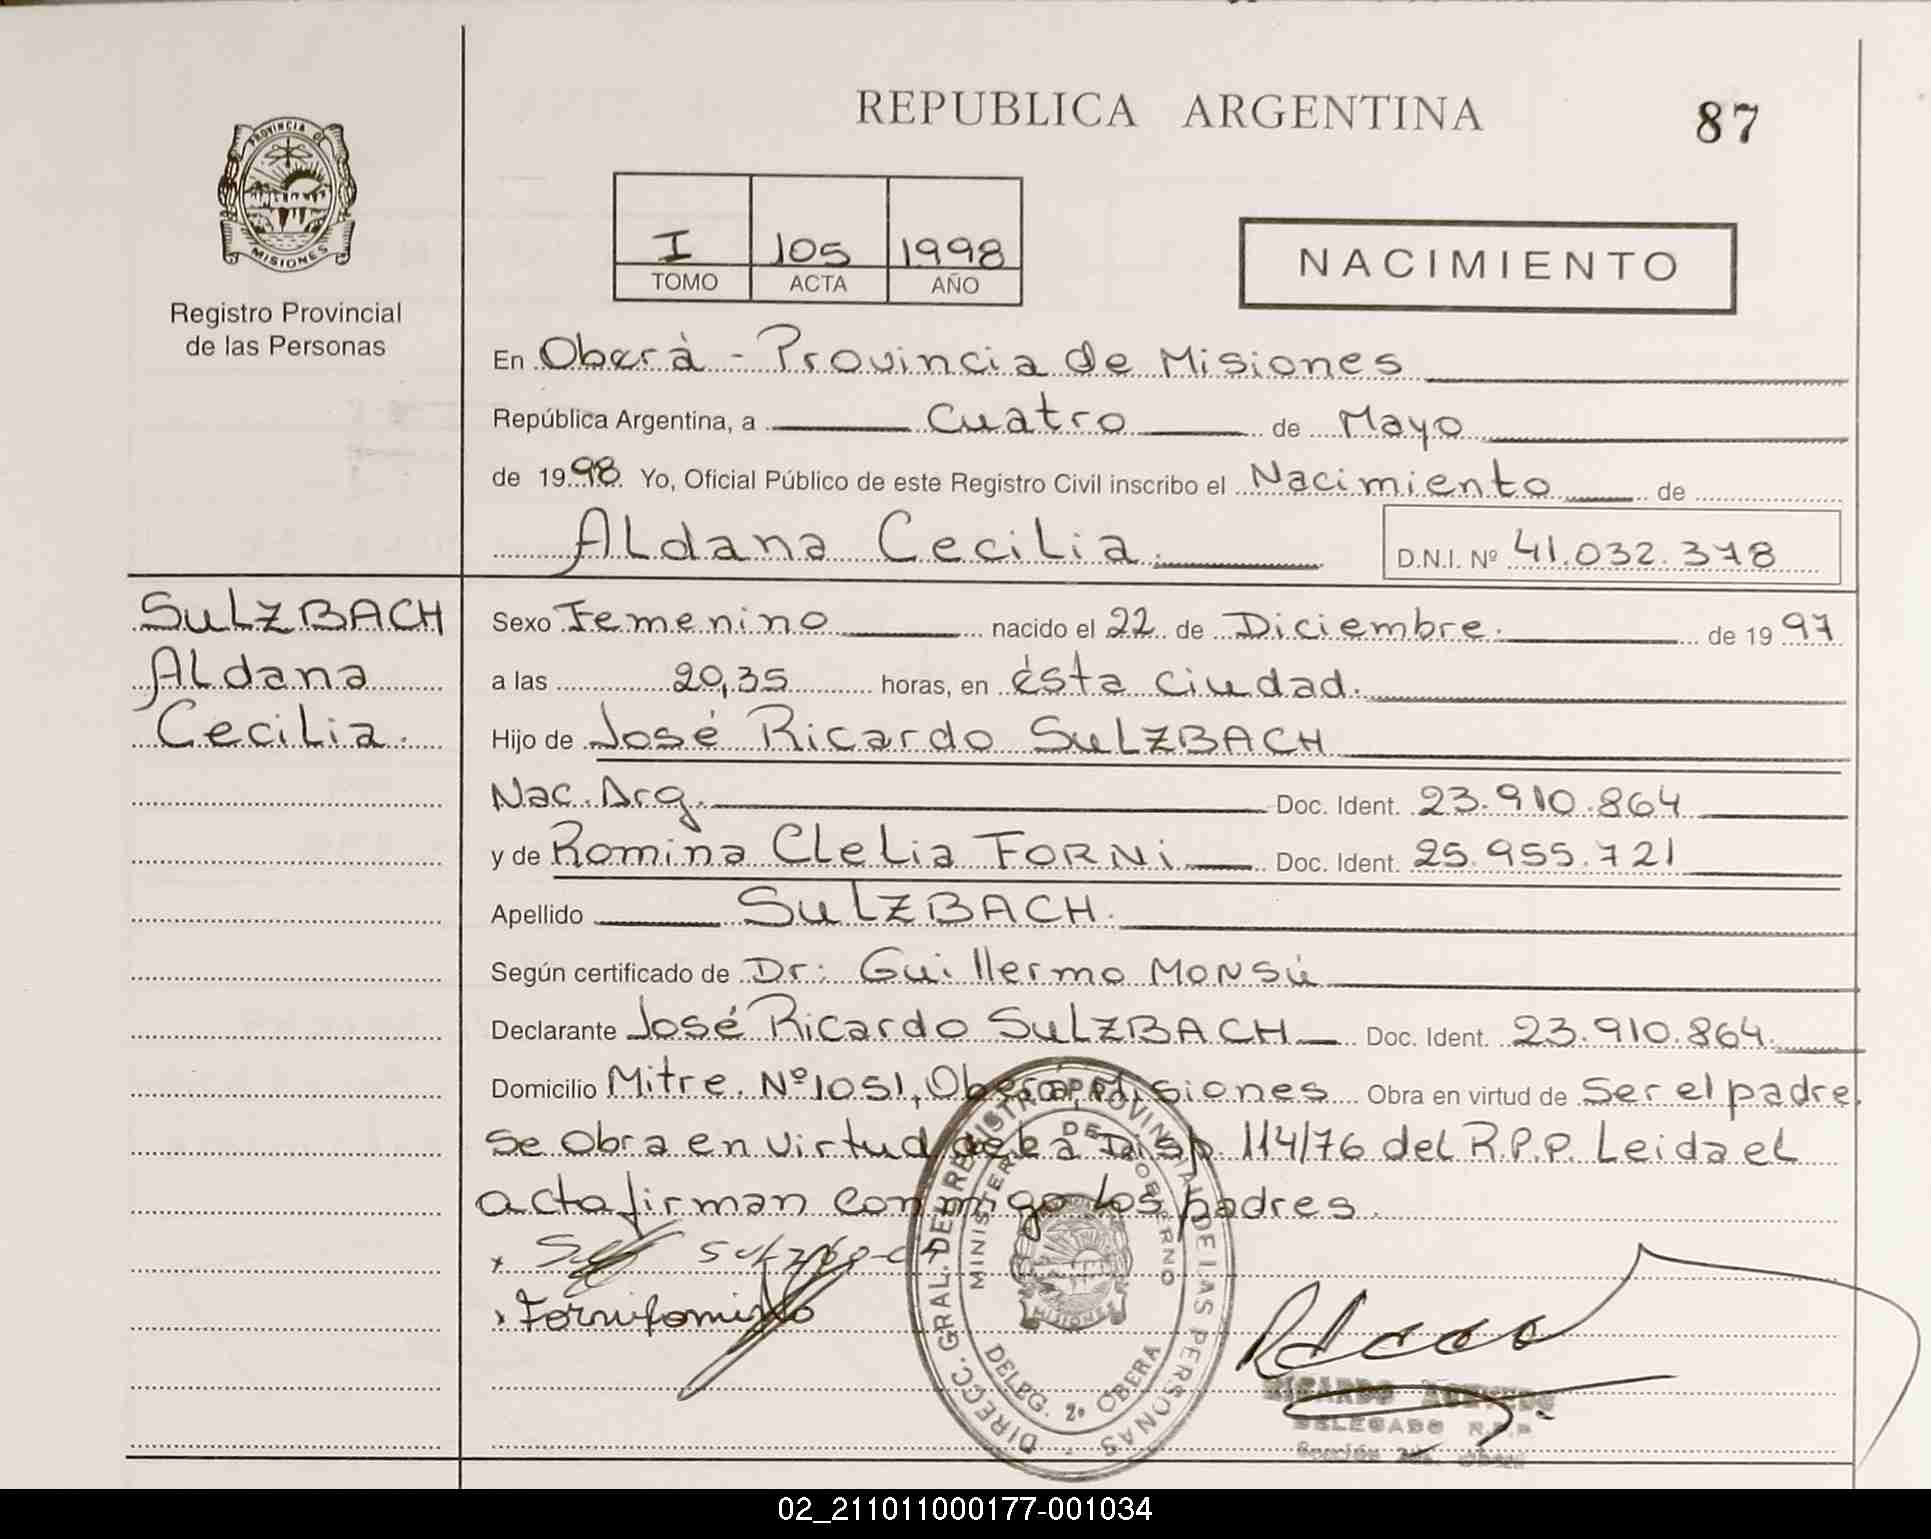 REPUBLICA ARGENTINA
87
PROVINCIA DE
MISIONES
Registro Provincial
de las Personas
I 105 1998
TOMO ACTA AÑO
NACIMIENTO
En Oberá - Provincia de Misiones
República Argentina, a Cuatro de Mayo
de 1998. Yo, Oficial Público de este Registro Civil inscribo el Nacimiento de
Aldana Cecilia. D.N.I. Nº 41.032.378
SULZBACH
Aldana
Cecilia.
Sexo Femenino nacido el 22 de Diciembre. de 1997
a las 20,35 horas, en ésta ciudad.
Hijo de José Ricardo SULZBACH
Nac. Arg. Doc. Ident. 23.910.864
y de Romina Clelia FORNI Doc. Ident. 25.955.721
Apellido SULZBACH.
Según certificado de Dr: Guillermo MONSÚ
Declarante José Ricardo SULZBACH Doc. Ident. 23.910.864.
Domicilio Mitre. Nº 1051, Oberá, Misiones Obra en virtud de Ser el padre.
Se Obra en virtud de la Disp. 114/76 del R.P.P. Leida el
acta firman conmigo los padres.
DIRECC. GRAL. DEL REGISTRO PROVINCIAL DE LAS PERSONAS
MINISTERIO DE GOBIERNO
MISIONES
DELEG. 2ª OBERA
RICARDO ACEVEDO
DELEGADO R.P.P.
Sección 2da. Oberá
02_211011000177-001034